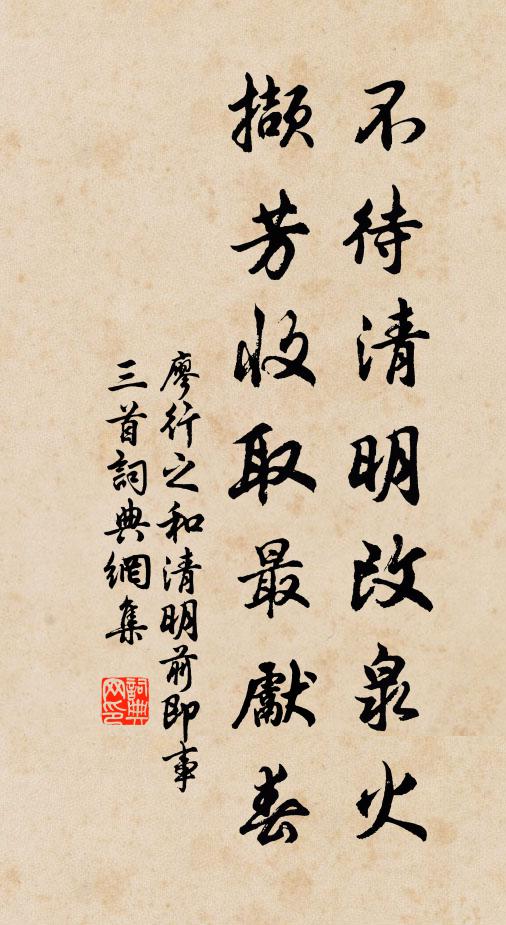 不待清明改泉火
擷芳收取最獻春
廖行之和清明前即事
三首詞典網集
詞典
网印